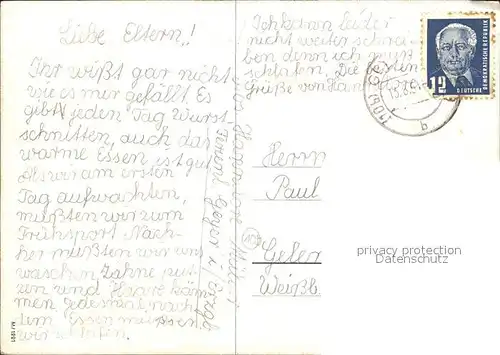 Liebe Eltern!
Ihr wißt gar nicht
wie es mir gefällt. Es
gibt jeden Tag Wurst-
schnitten, auch das
warme Essen ist gut
Als wir am ersten
Tag aufwachten,
mußten wir zum
Frühsport Nach-
her mußten wir uns
waschen Zähne put-
zen und Haare käm-
men jedesmal nach
dem Essen müssen
wir schlafen.
Ich kann leider
nicht weiter schrei-
ben denn ich muß
schlafen. Die besten
Grüße von
12
DEUTSCHE
DEMOKRATISCHE REPUBLIK
Herrn
Paul
Gelen
Weißb.
privacy protection
Datenschutz